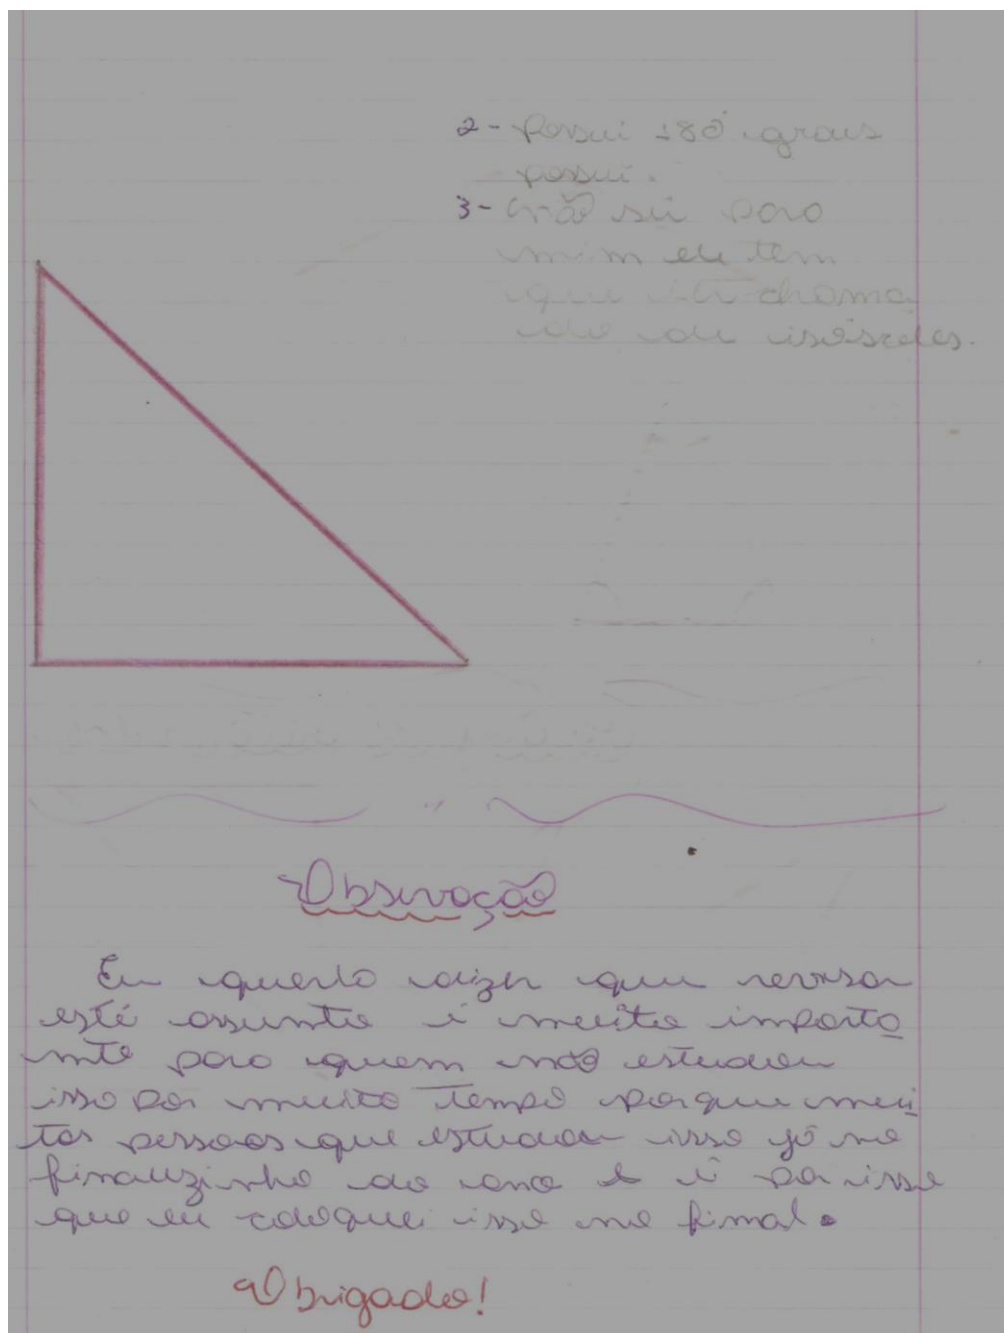 2- Possui 180 graus
possui.
3- não sei para
mim ele tem
que ser chama
do de isósceles.
Observação
Eu quero dizer que revisar
esté assunto é muito importa
nte para quem não estudou
isso por muito tempo porque mui
tas pessoas que estudou isso já no
finalzinho do ano e é por isso
que eu coloquei isso no final.
Obrigado!